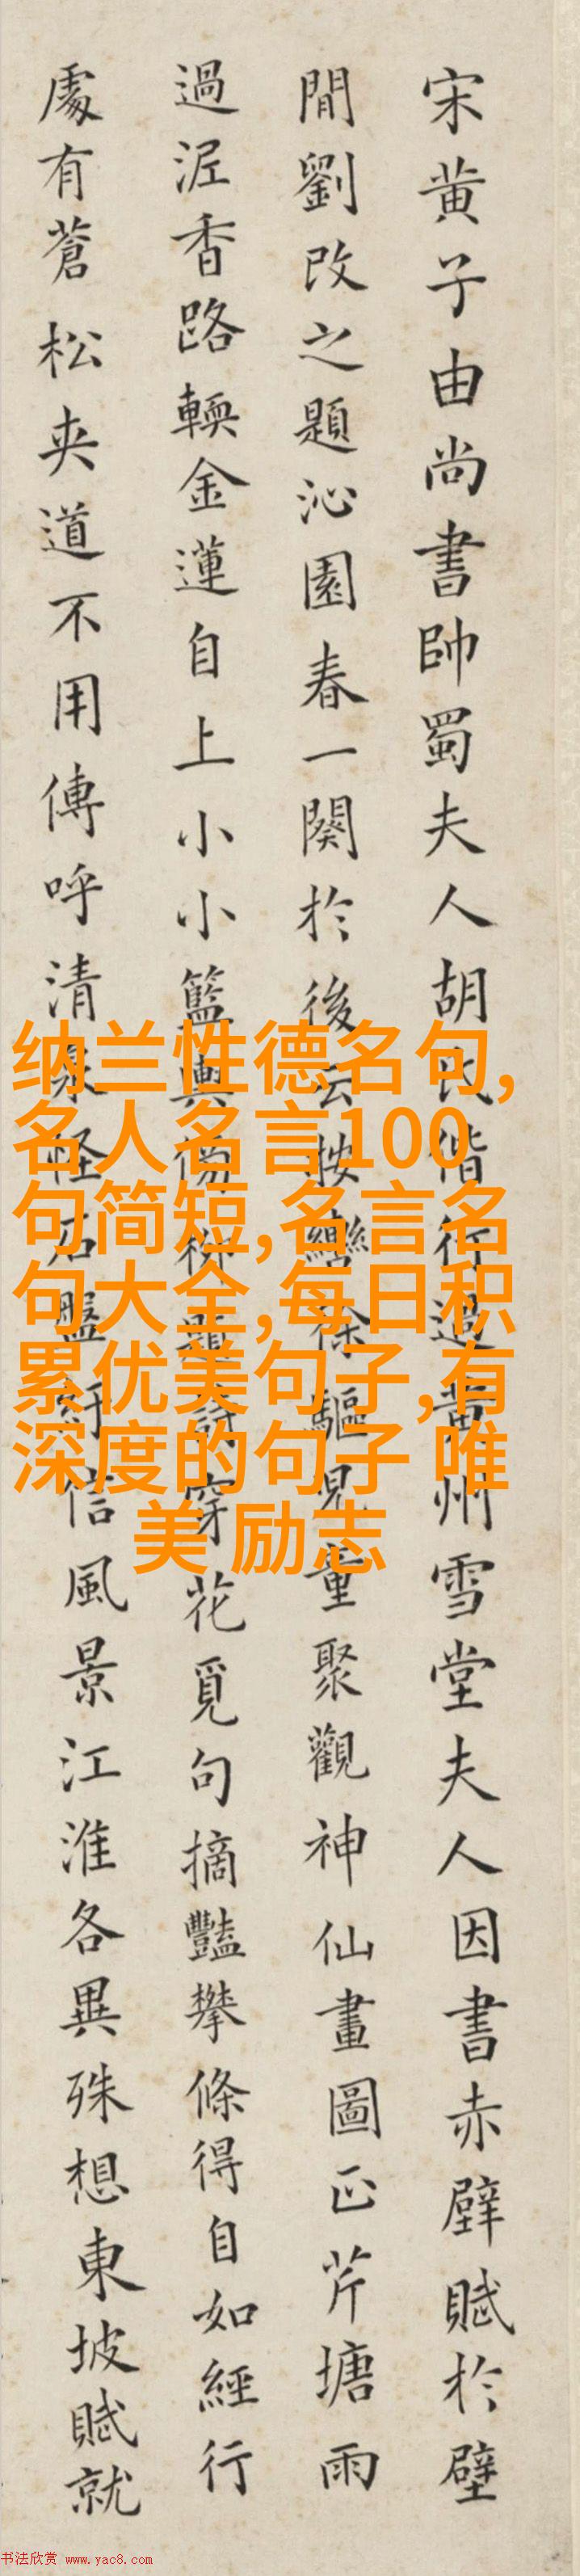 宋黄子由尚書帥蜀夫人胡氏偕行過黄州雪堂夫人因書赤壁賦於壁
間劉改之題沁園春一闋於後云按轡徐驅兒童聚觀神仙畫圖正芹塘雨
過泥香路輭金蓮自上小小籃輿傍柳題詩穿花覓句摘豔攀條得自如經行
處有蒼松夾道不用傳呼清泉怪石盤紆信風景江淮各異殊想東坡賦就
纳兰性德名句,
名人名言100
句简短,名言名
句大全,每日积
累优美句子,有
深度的句子 唯
美 励志
书法欣赏 www.yac8.com